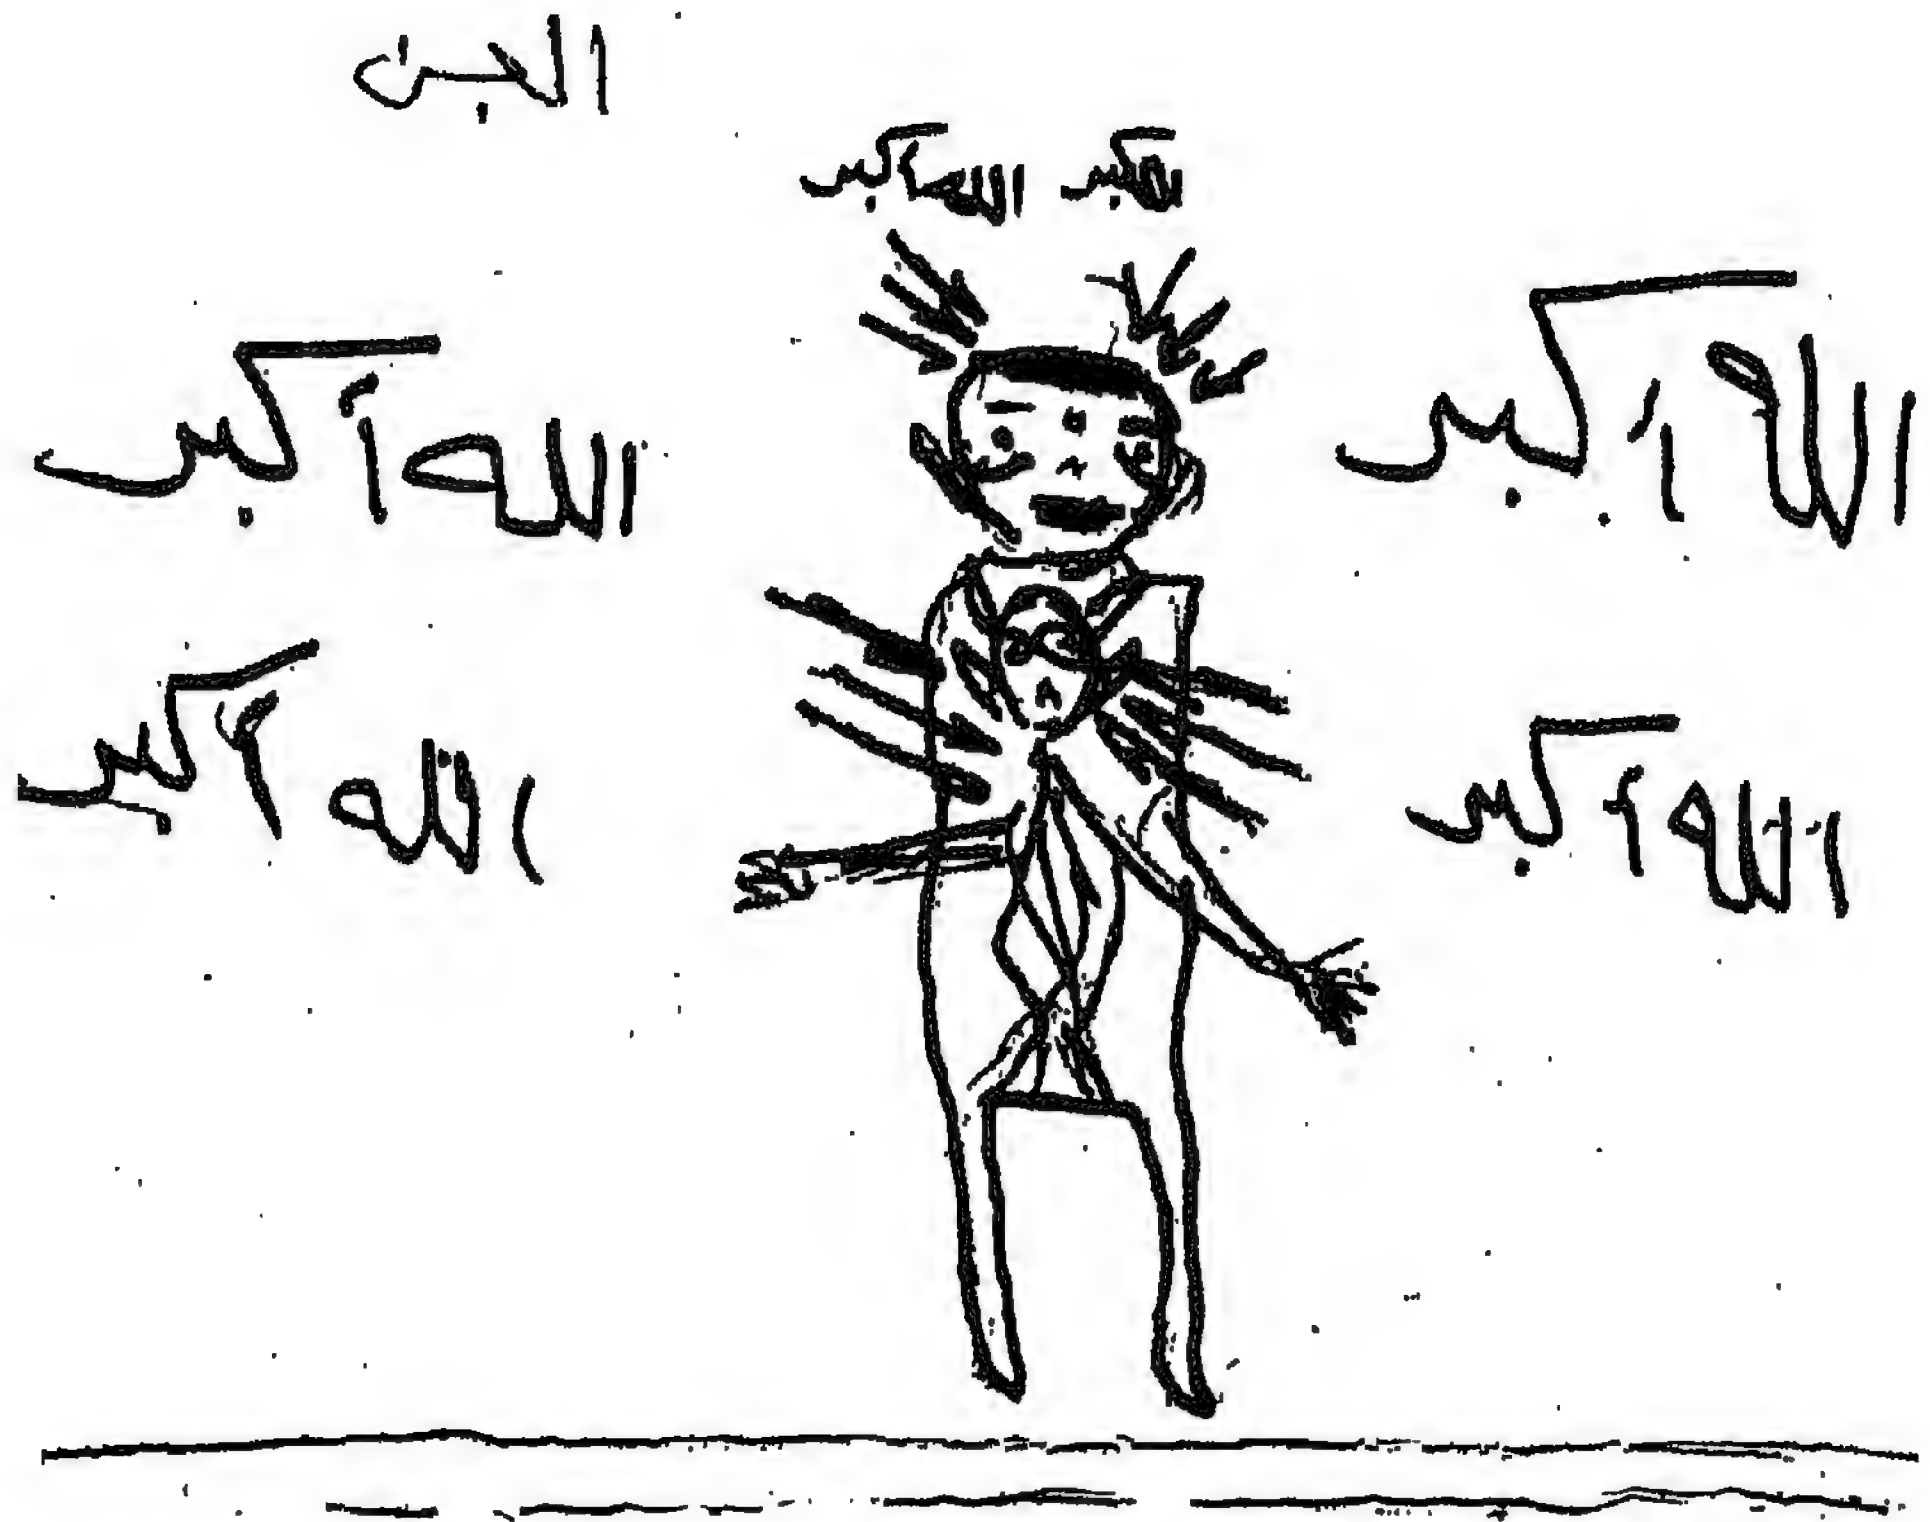 الجن
الله أكبر الله أكبر
الله أكبر
الله أكبر
الله أكبر
الله أكبر